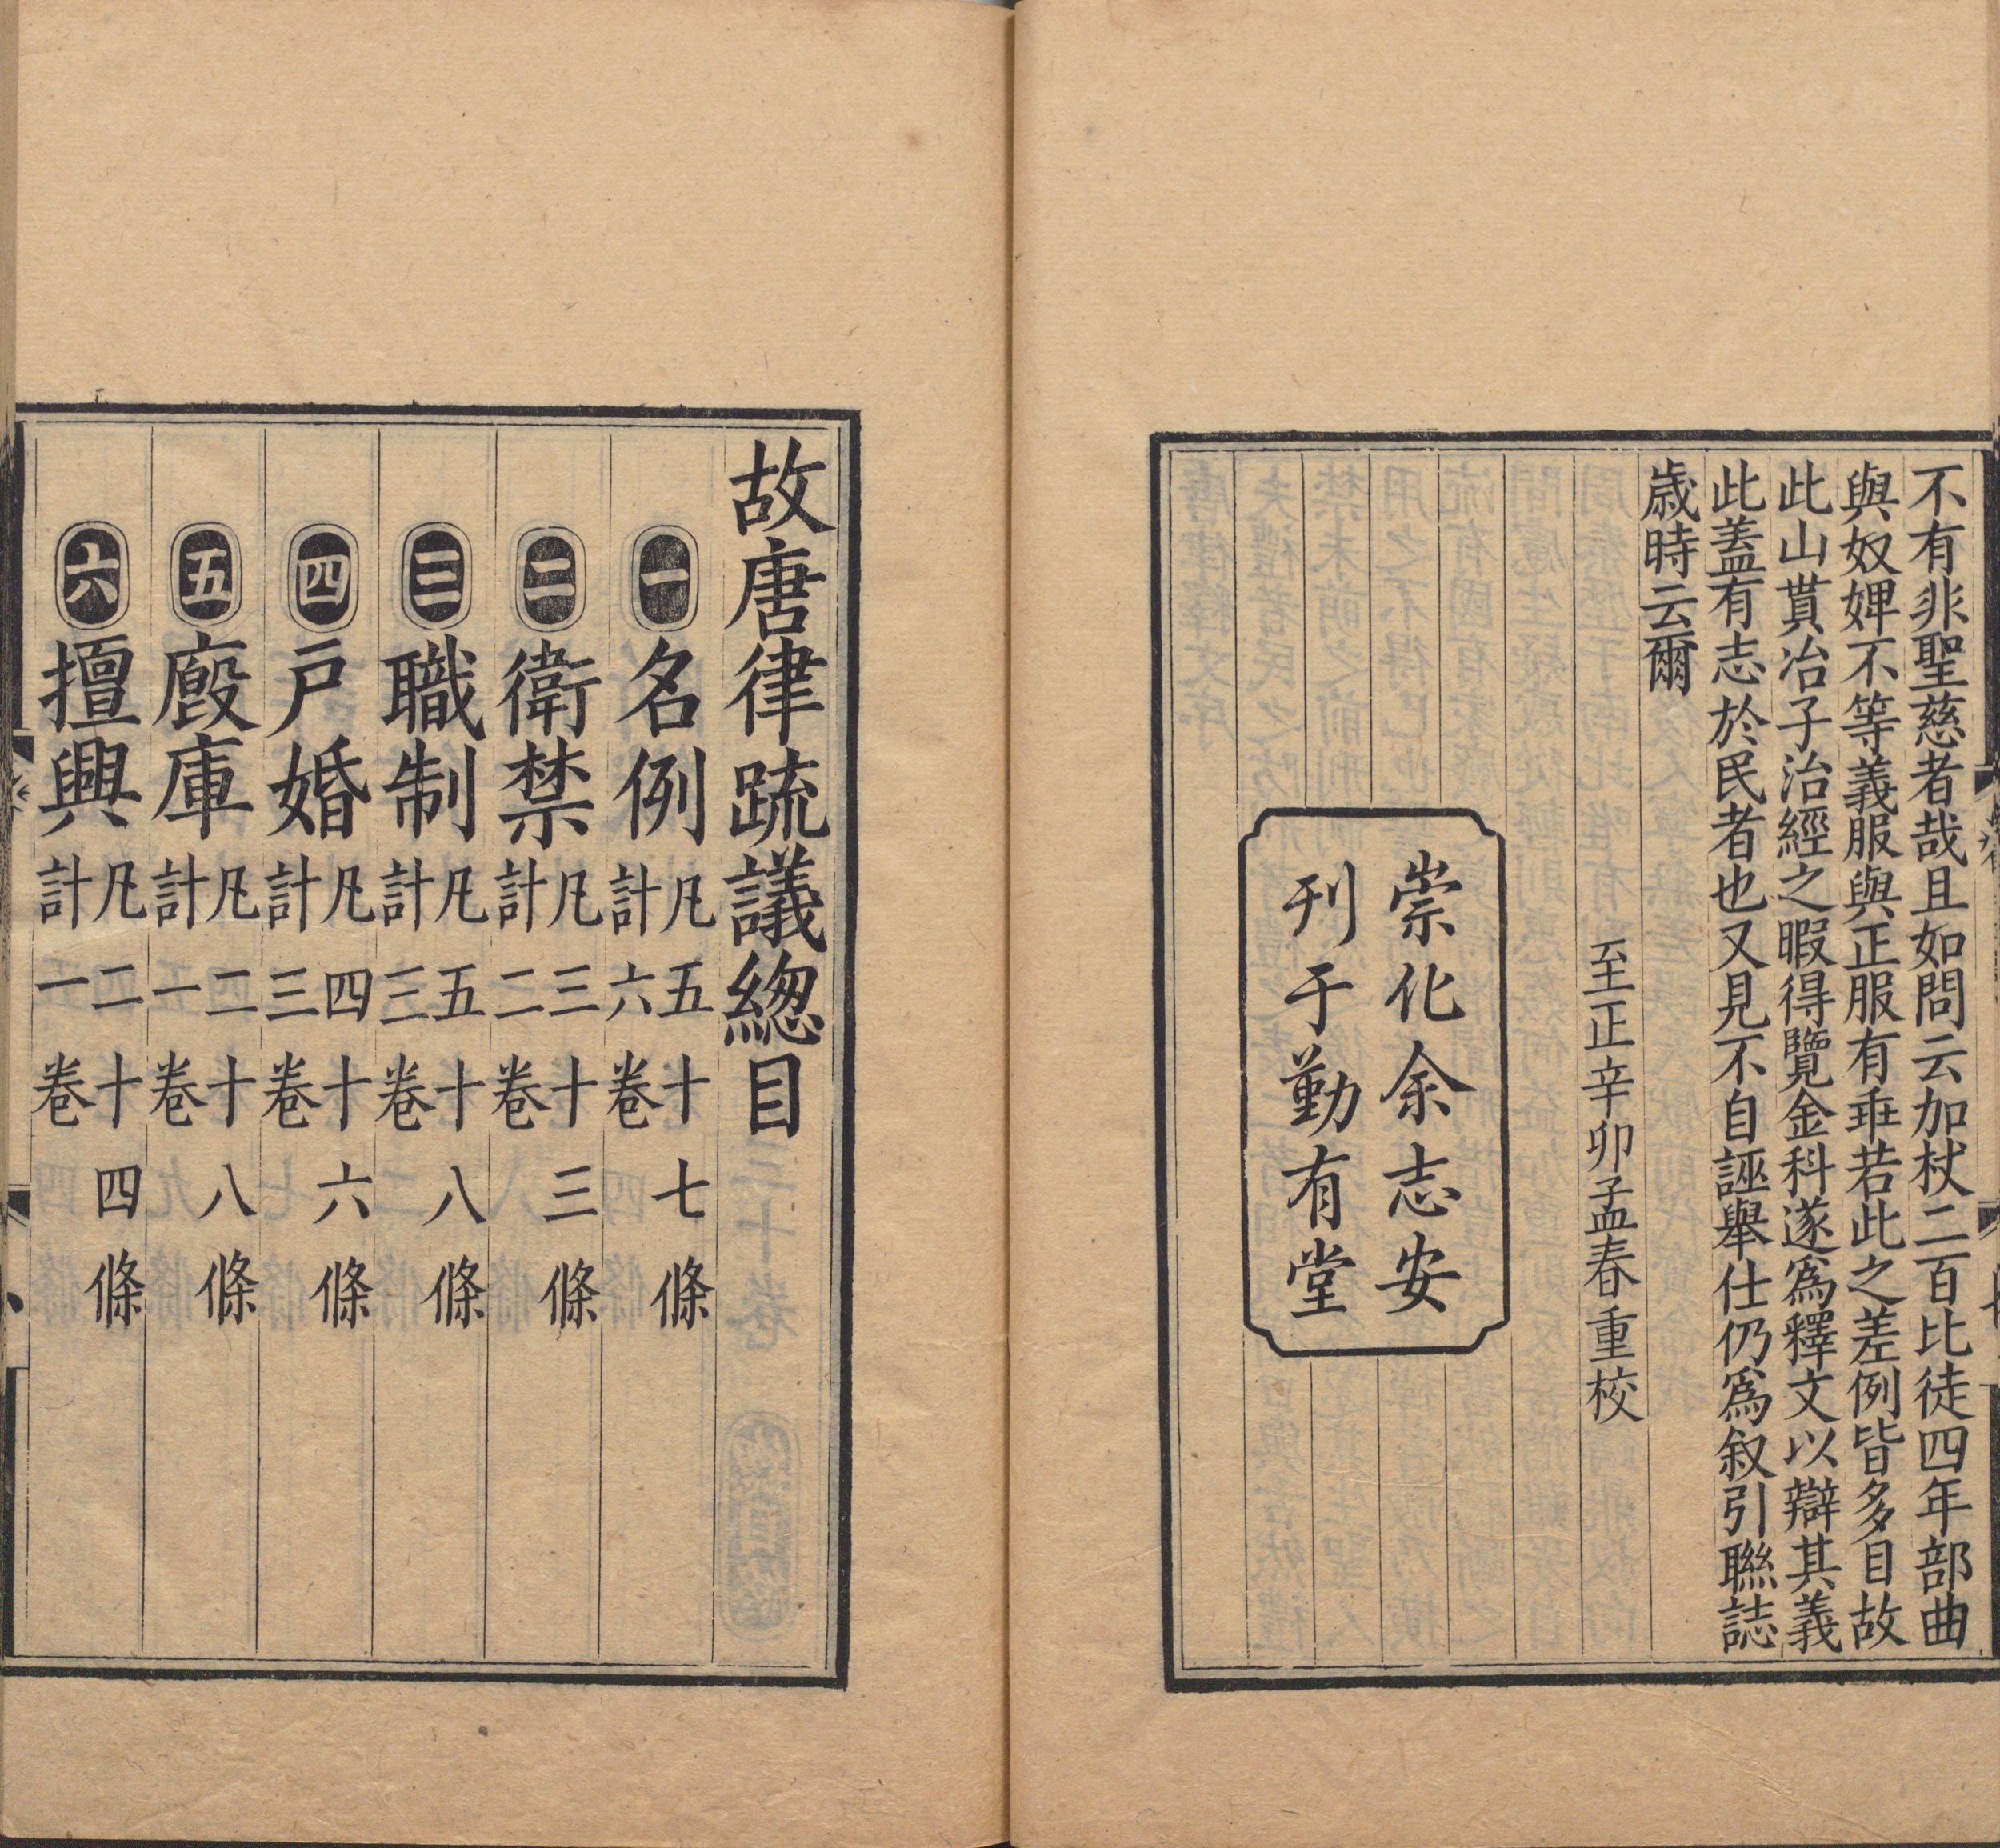 不有非聖慈者哉且如問云加杖二百比徒四年部曲
與奴婢不等義服與正服有乖若此之差例皆多目故
此山貰冶子治經之暇得覽金科遂爲釋文以辯其義
此蓋有志於民者也又見不自誣舉仕仍爲叙引聯誌
歳時云爾
至正辛卯孟春重校
崇化余志安
刊于勤有堂
故唐律疏議緫目
一名例凡五十七條
計六卷
二衛禁凡三十三條
計二卷
三職制凡五十八條
計三卷
四戸婚凡四十六條
計三卷
五廄庫凡二十八條
計一卷
六擅興凡二十四條
計一卷